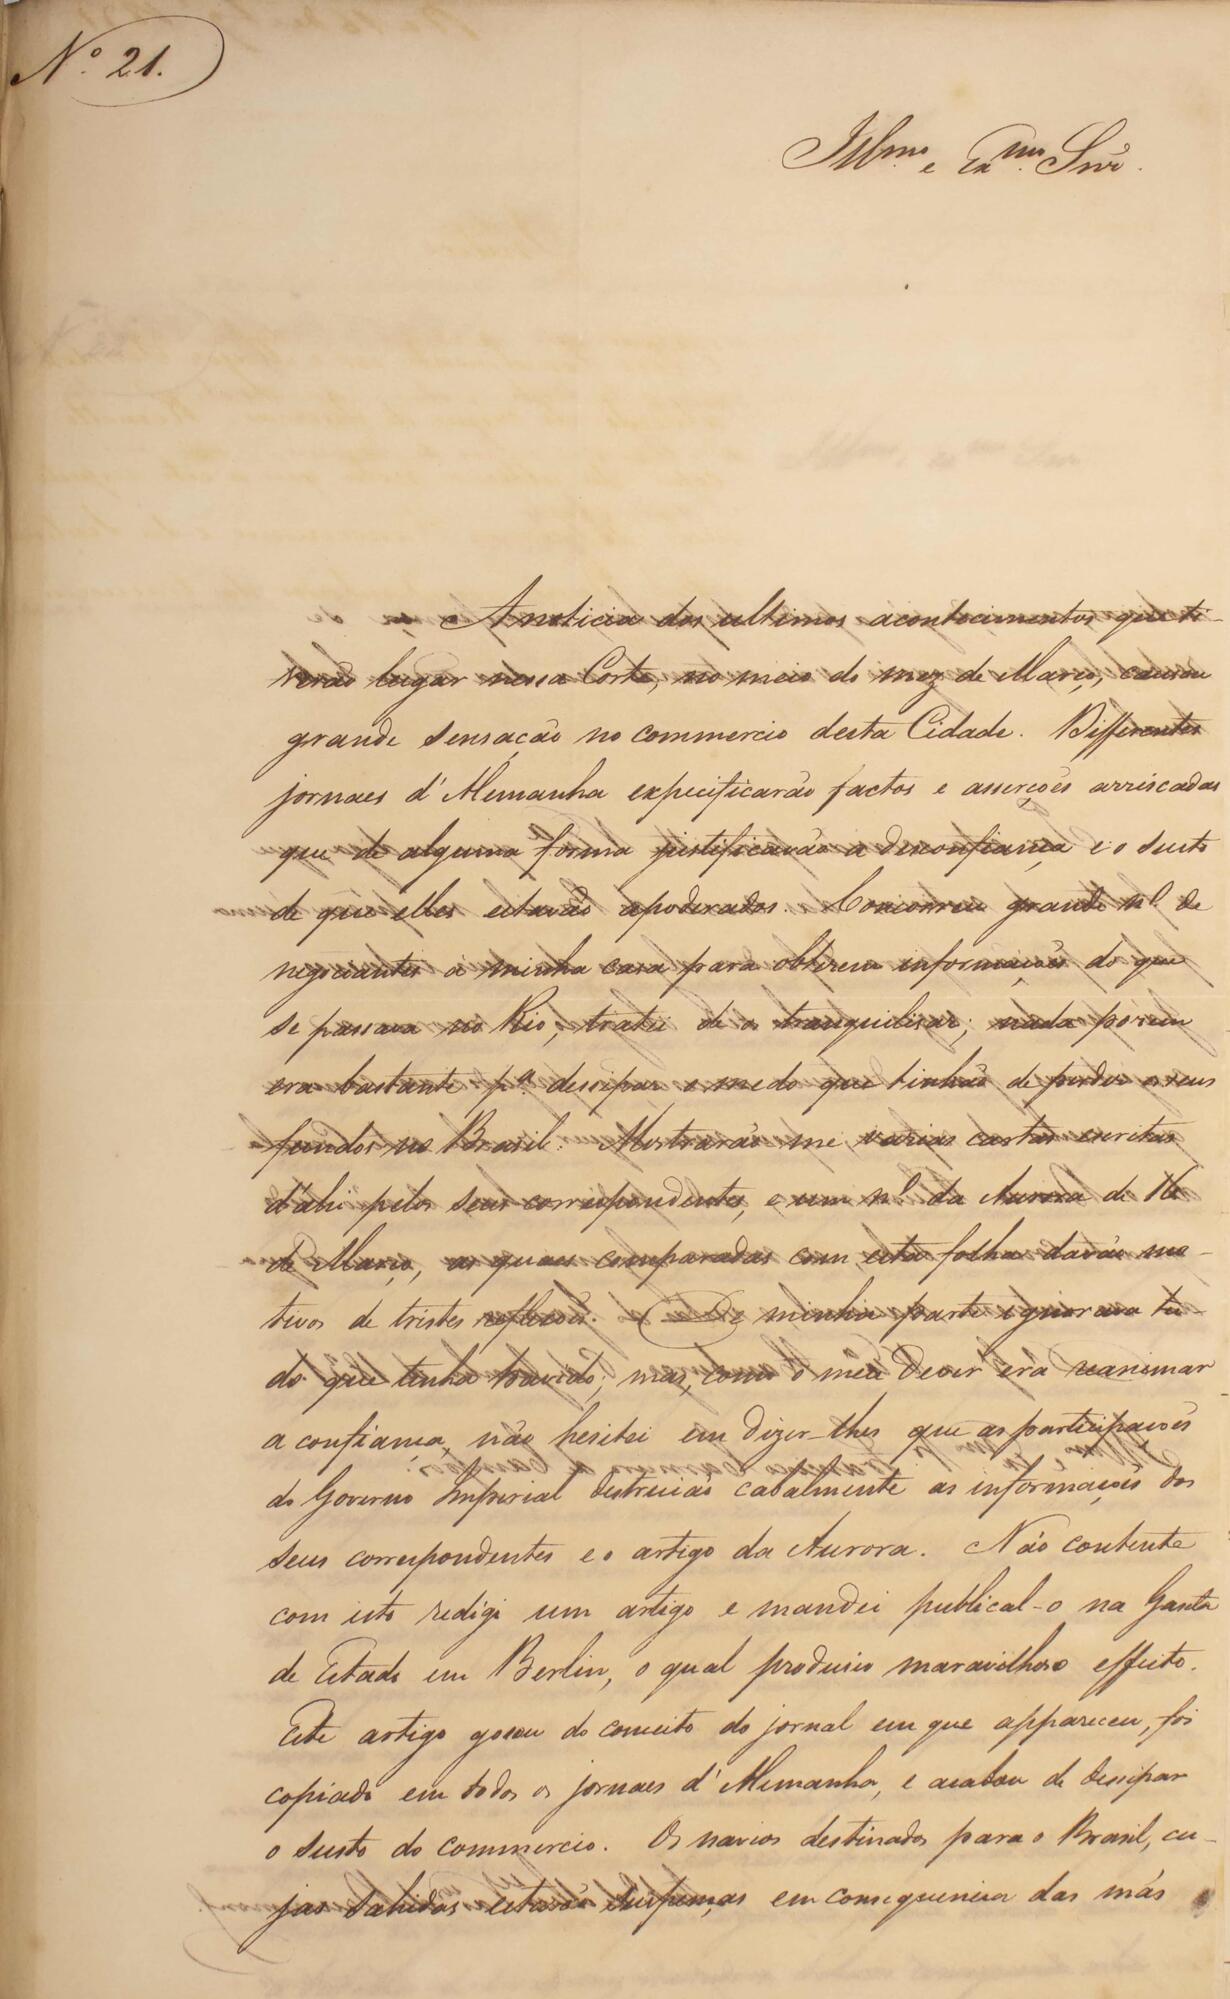 Nº 21.
Illmo. e Exmo. Snr.
A noticia dos ultimos acontecimentos que ti-
verão lugar nessa Corte, no meio do mez de Março, causou
grande sensação no commercio desta Cidade. Differentes
jornaes d'Alemanha expecificarão factos e asserções arriscadas
que de alguma forma justificavão a desconfiança e o susto
de que elles estavão apoderados. Concorreu grande nº de
negociantes á minha casa para obterem informações do que
se passava no Rio, tratei de os tranquilisar; nada porem
era bastante pª dissipar o medo que tinhão de perder os seus
fundos no Brasil. Mostrarão me varias cartas escritas
d'ahi pelos seus correspondentes, e um nº da Aurora de 16
de Março, as quaes comparadas com esta folha davão mo-
tivos de tristes reflexões. De minha parte ignorava tu-
do que tinha havido; mas, como o meu dever era reanimar
a confiança, não hesitei em dizer-lhes que as participações
do Governo Imperial destruião cabalmente as informações dos
seus correspondentes e o artigo da Aurora. Não contente
com isto redigi um artigo e mandei publical-o na Gazeta
de Estado em Berlin, o qual produsio maravilhoso effeito.
Este artigo gosou do conceito do jornal em que appareceu, foi
copiado em todos os jornaes d'Alemanha, e acabou de dissipar
o susto do commercio. Os navios destinados para o Brasil, cu-
jas sahidas estavão suspensas em consequencia das más